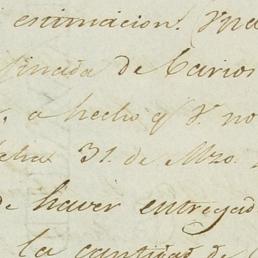 estimacion.
finada de Carios
a hecho q V. no
31. de Mzo.
de haver entregad
la cantidad de